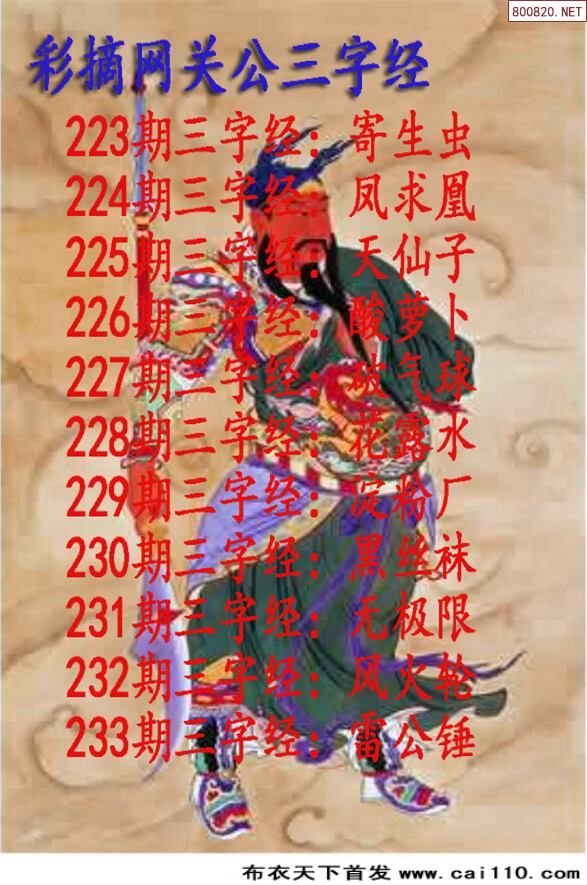 800820.NET
彩摘网关公三字经
223期三字经：寄生虫
224期三字经：凤求凰
225期三字经：天仙子
226期三字经：酸萝卜
227期三字经：破气球
228期三字经：花露水
229期三字经：淀粉厂
230期三字经：黑丝袜
231期三字经：无极限
232期三字经：风火轮
233期三字经：雷公锤
布衣天下首发 www.cai110.com